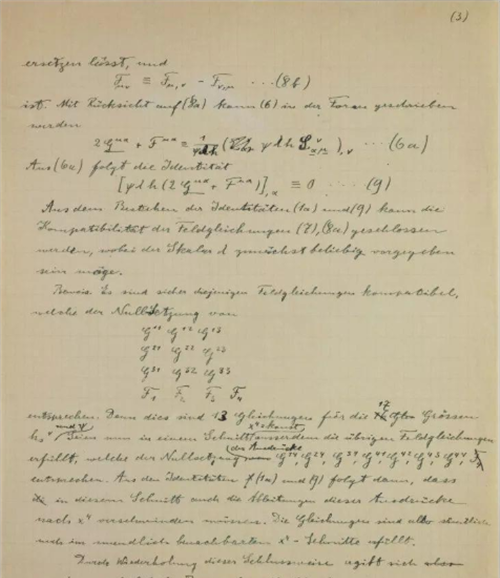 (3)
ersetzen lässt, und
F_μν ≡ F_μ,ν − F_ν,μ ··· (8b)
ist. Mit Rücksicht auf (8a) kann (6) in der Form geschrieben
werden
2 G^μα + F^μα ≡ (ψ λ h S ),ν ··· (6a)
Aus (6a) folgt die Identität
[ψ λ h (2 G^μα + F^μα)],α ≡ 0 ··· (9)
Aus dem Bestehen der Identitäten (1a) und (9) kann die
Kompatibilität der Feldgleichungen (7), (8a) geschlossen
werden, wobei der Skalar λ zunächst beliebig vorgegeben
sein möge.
Beweis. Es sind sicher diejenigen Feldgleichungen kompatibel,
welche der Nullsetzung von
G^11 G^12 G^13
G^21 G^22 G^23
G^31 G^32 G^33
F_1 F_2 F_3 F_4
entsprechen. Denn dies sind 13 Gleichungen für die 17 Grössen
und ψ x^4 = konst.
Seien nun in einem Schnitt ausserdem die übrigen Feldgleichungen
der Ausdrücke
erfüllt, welche der Nullsetzung G^14 G^24 G^34 G^41 G^42 G^43 G^44
entsprechen. Aus den Identitäten (1a) und (9) folgt dann, dass
in diesem Schnitt auch die Ableitungen dieser Ausdrücke
nach x^4 verschwinden müssen. Die Gleichungen sind also
auch im unendlich benachbarten x^4-Schnitte erfüllt.
Durch Wiederholung dieser Schlussweise ergibt sich